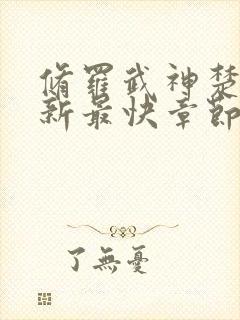 脩羅武神楚
新最快章節
了無憂